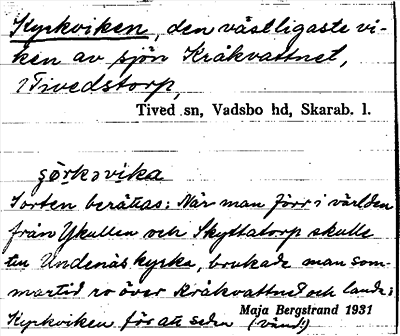 Kyrkviken, den västligaste vi-
ken av sjön Kråkvattnet,
i Tivedstorp,
Tived sn, Vadsbo hd, Skarab. l.
çörkəvika
I orten berättas: När man förr i världen
från Ykullen och Skyttatorp skulle
till Undenäs kyrka, brukade man som-
martid ro över Kråkvattnet och landa i
Maja Bergstrand 1931
Kyrkviken för att sedan (vänd!)